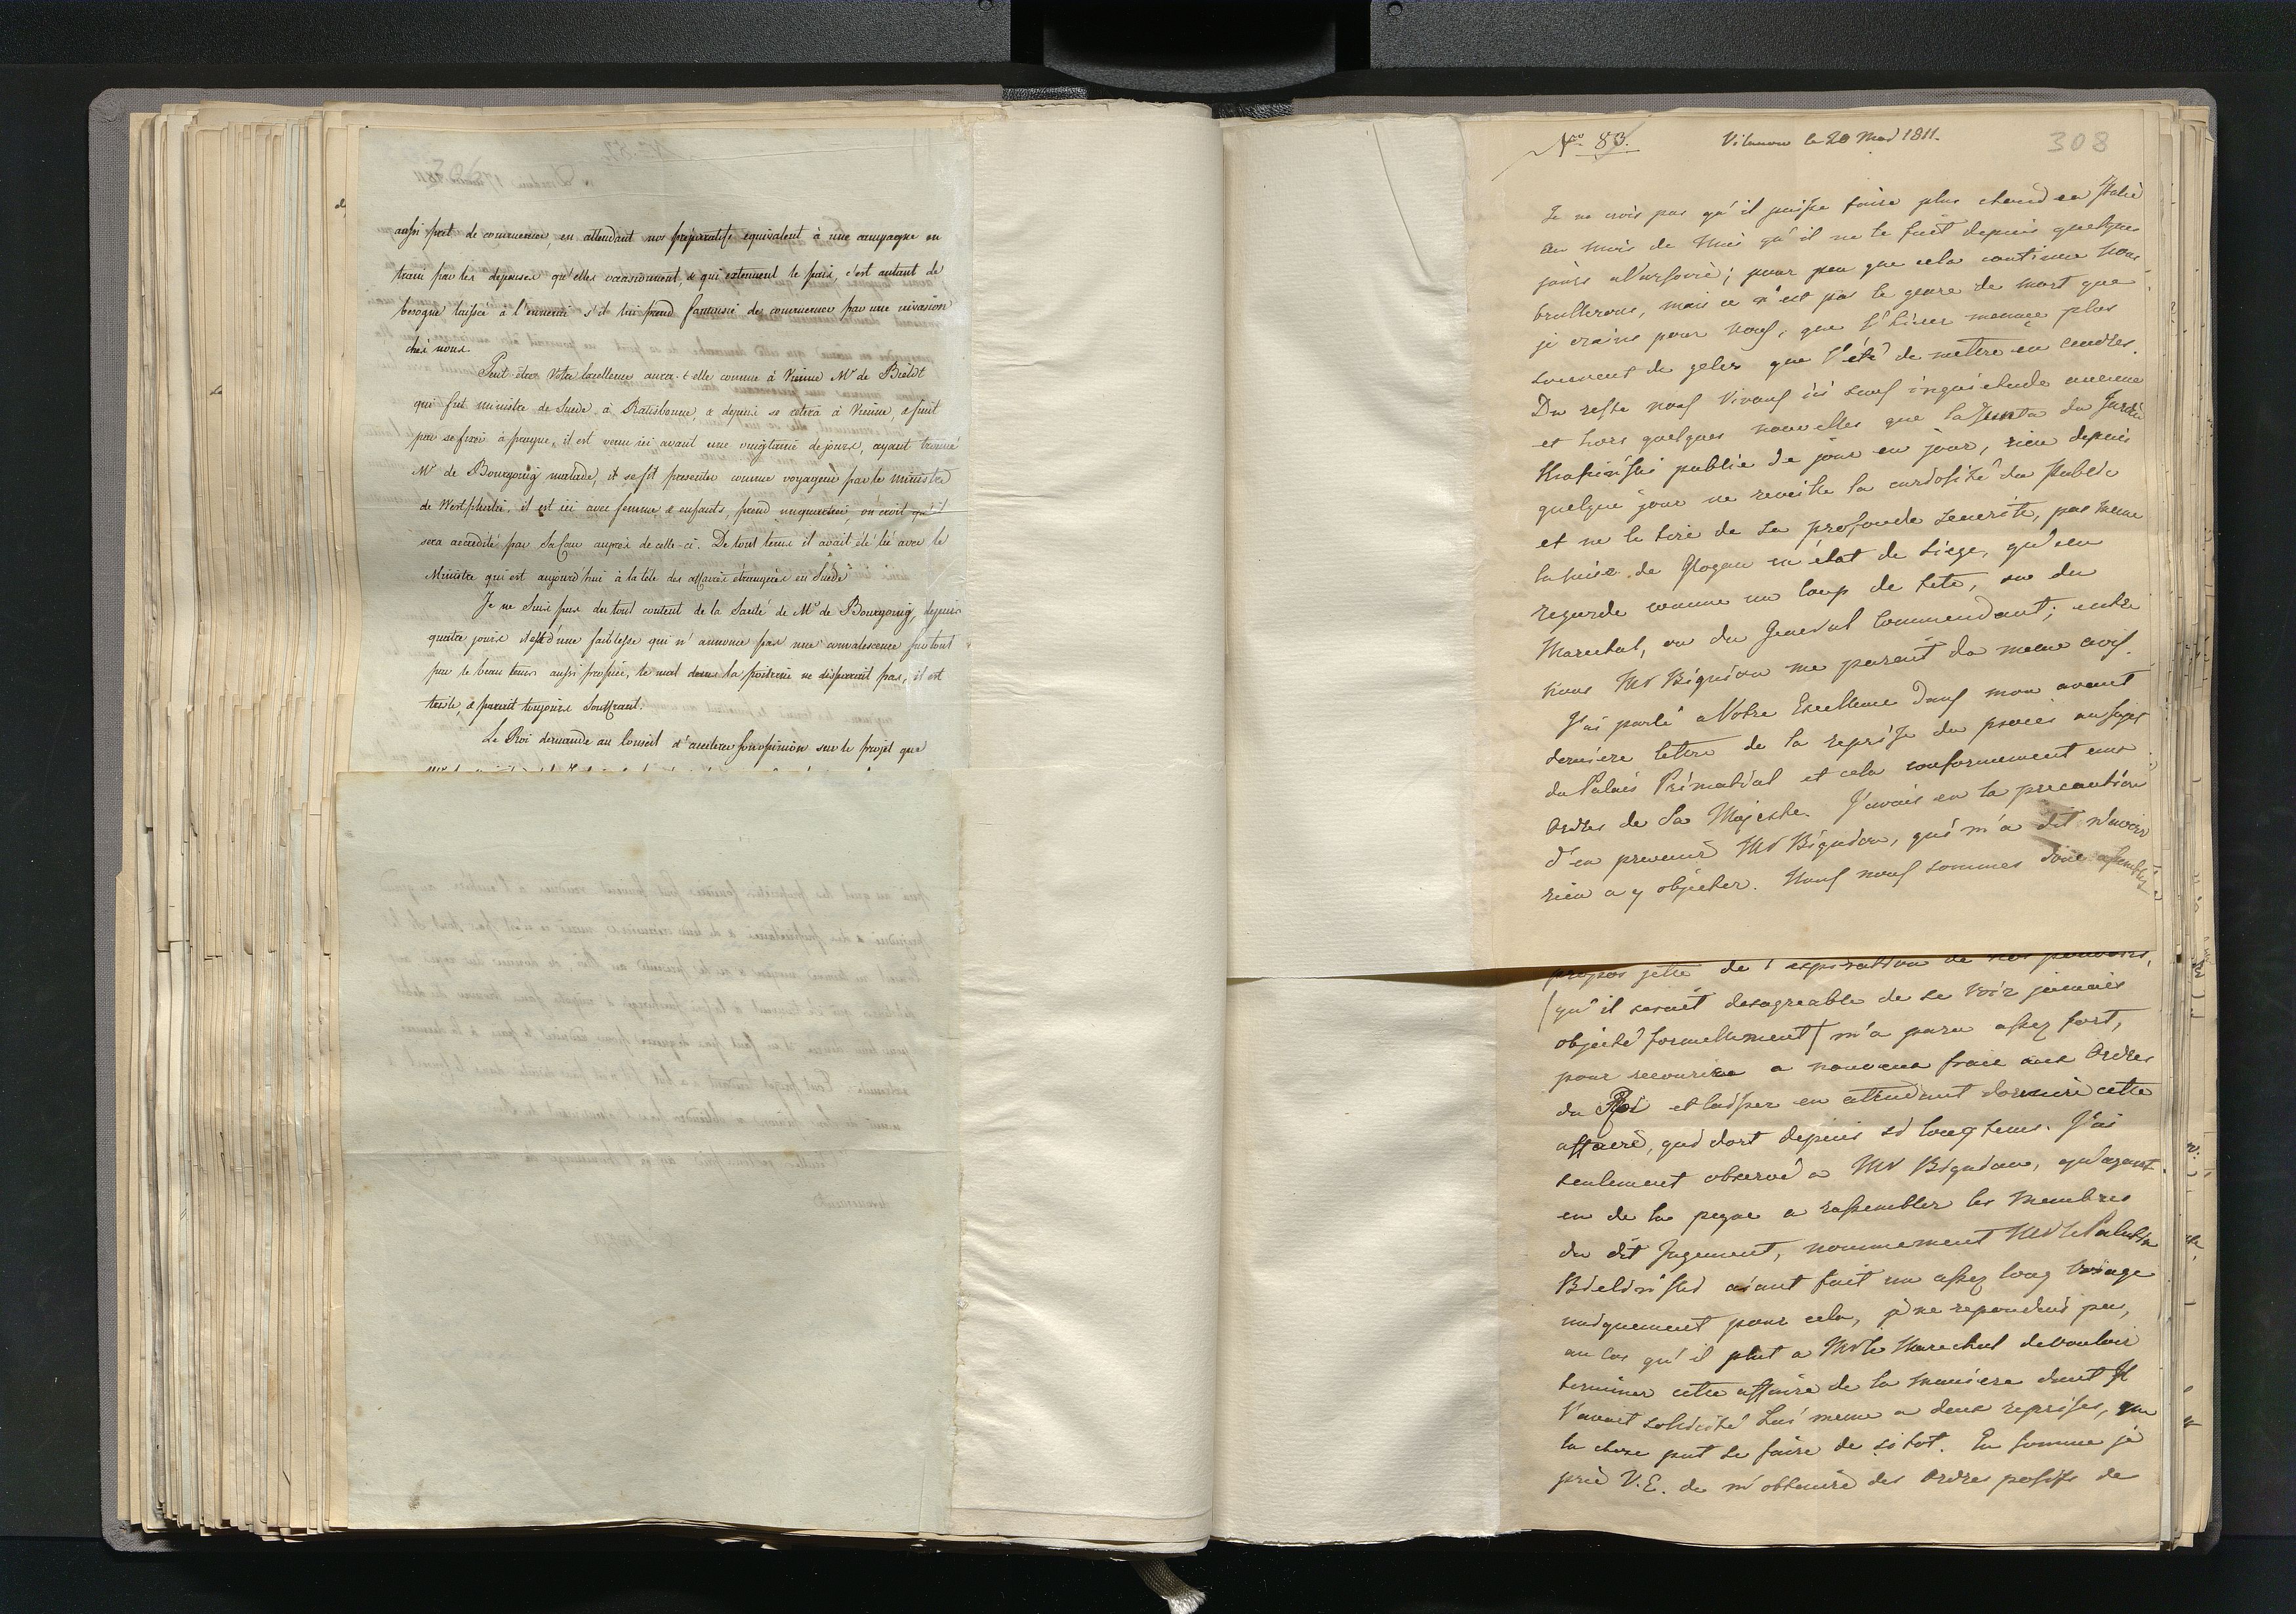 aussi pret de commencer, en attendant nos préparatifs equivalent à une campagne en
train par les depenses qu'elles occasionnent, & qui extenuent le païs, c'est autant de
besogne laissée à l'ennemi s'il lui prend fantaisie de commencer par une invasion
chés nous.
Peut-être Votre Excellence aura-t-elle connue à Vienne Mr de Bieldt
qui fut ministre de Suede à Ratisbonne, & depuis se retira à Vienne, & finit
par se fixer à prague, il est venu ici avant une vingtaine de jours, ayant trouvé
Mr de Bourgoing malade, il se fit presenter comme voyageur par le ministre
de Westphalie, il est ici avec femme & enfants, prend un quartier, on croit qu'il
sera accredité par sa Cour auprès de celle-ci. De tout tems il avait été lié avec le
Ministre qui est aujourd'hui à la tête des affaires étrangères en Suede
Je ne suis pas du tout content de la Santé de Mr de Bourgoing, depuis
quatre jours il est d'une faiblesse qui n'annonce pas une convalescence surtout
par le beau tems aussi propice, le mal dans la poitrine ne disparait pas, il est
triste, & parait toujours Souffrant.
Le Roi demande au Conseil d'accelerer son opinion sur le projet que
Nro 83.
Vilanow le 20 Mai 1811.
308
Je ne crois pas qu'il puisse faire plus chaud en Italie
au mois de Mai qu'il ne le fait depuis quelques
jours a Varsovie; pour peu que cela continue nous
brullerons, mais ce n'est pas le genre de mort que
je crains pour nous, que l'hiver menace plus
souvent de geler que l'été de mettre en cendres.
Du reste nous vivons ici sans inquietude aucune
et hors quelques nouvelles que la Junta du Jardin
Krasinski publie de jour en jour, rien depuis
quelque jour ne reveille la curiosité du Public
et ne le tire de sa profonde securité, pas meme
la mise de Glogau en état de Siege, qu'on
regarde comme un coup de tete, ou du
Marechal, ou du General Commendant; entre
nous Mr Bignion me parait du meme avis.
J'ai parlé a Votre Excellence dans mon avant
derniere lettre de la reprise du procès au sujet
du Palais Primatial et cela conformement aux
Ordres de Sa Majesté. J'avais eu la precaution
d'en prevenir Mr Bignion, qui m'a dit n'avoir
rien a y objecter. Nous nous sommes donc assemblés
propos jetté de l'expiration de nos pouvoirs,
(qu'il serait desagreable de se voir jamais
objecté formellement) m'a paru assez fort,
pour recourire a nouveaux frais aux Ordres
du Roi et laisser en attendant dormire cette
affaire, qui dort depuis si long tems. J'ai
seulement observé a Mr Bignion, qu'ayant
eu de la peine a rassembler les Membres
du dit Jugement, nommement Mr le Palatin
Bielinski aiant fait un assez long voiage
uniquement pour cela, je ne repondais pas,
au cas qu'il plut a Mr le Marechal de vouloir
terminer cette affaire de la maniere dont Il
l'avait sollicité Lui meme a deux reprises, que
la chose put se faire de si tot. En somme je
prie V. E. de m'obtenire des Ordres positifs de